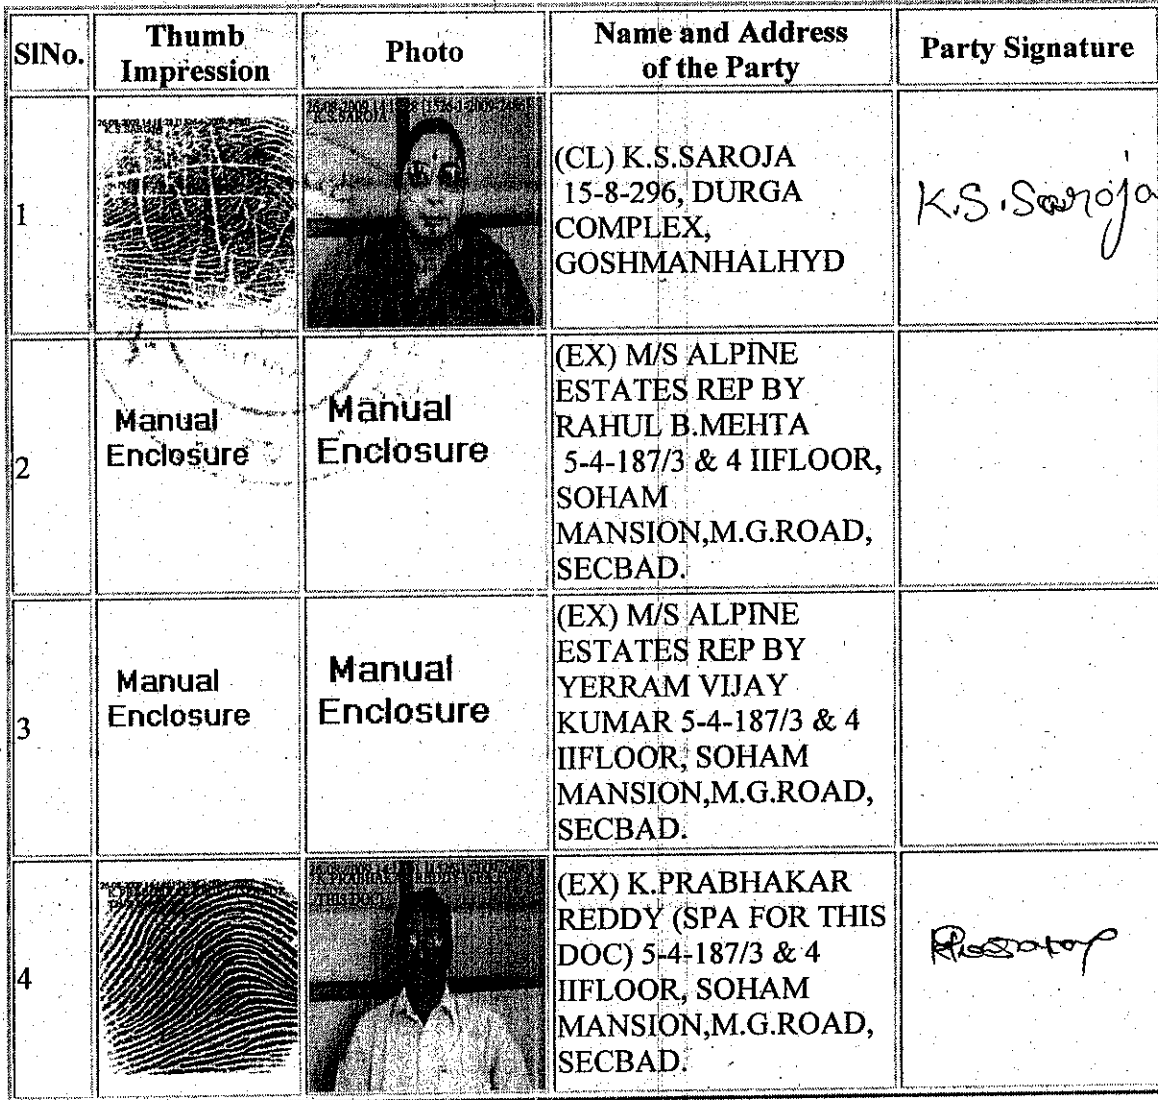 SlNo.
Thumb
Impression
Photo
Name and Address
of the Party
Party Signature
1
K.S.SAROJA
K.S.SAROJA
(CL) K.S.SAROJA
15-8-296, DURGA
COMPLEX,
GOSHMANHALHYD
K.S.Saroja
2
Manual
Enclosure
Manual
Enclosure
(EX) M/S ALPINE
ESTATES REP BY
RAHUL B.MEHTA
5-4-187/3 & 4 IIFLOOR,
SOHAM
MANSION,M.G.ROAD,
SECBAD.
3
Manual
Enclosure
Manual
Enclosure
(EX) M/S ALPINE
ESTATES REP BY
YERRAM VIJAY
KUMAR 5-4-187/3 & 4
IIFLOOR, SOHAM
MANSION,M.G.ROAD,
SECBAD.
4
THIS DOC)
(EX) K.PRABHAKAR
REDDY (SPA FOR THIS
DOC) 5-4-187/3 & 4
IIFLOOR, SOHAM
MANSION,M.G.ROAD,
SECBAD.